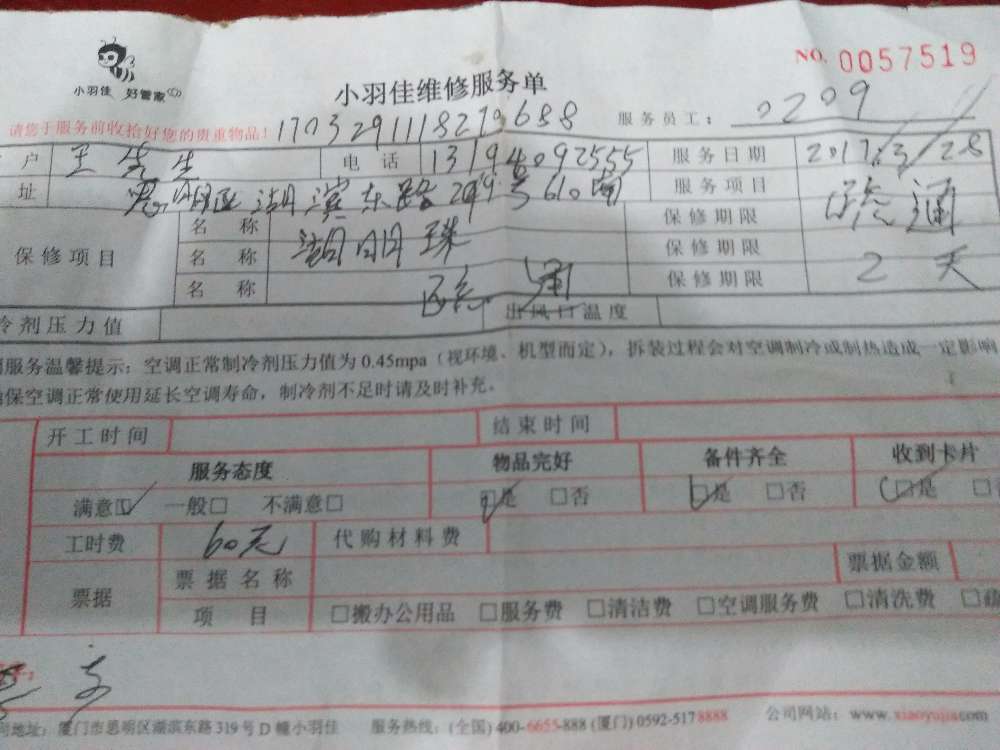 小羽佳 好管家
NO. 0057519
小羽佳维修服务单
请您于服务前收拾好您的贵重物品! 1703291118270688 服务员工: 0209
户 王先生 电话 13194092555 服务日期 2017.3/28
址 思明区湖滨东路 号610 服务项目 疏通
保修项目 名称 湖明珠 保修期限
名称 保修期限
名称 疏通 保修期限 2天
冷剂压力值 出风口温度
服务温馨提示: 空调正常制冷剂压力值为 0.45mpa (视环境、机型而定), 拆装过程会对空调制冷或制热造成一定影响
保空调正常使用延长空调寿命, 制冷剂不足时请及时补充。
开工时间 结束时间
服务态度 物品完好 备件齐全 收到卡片
满意□ 一般□ 不满意□ □是 □否 □是 □否 □是 □
工时费 60元 代购材料费
票据 票据名称 票据金额
项目 □搬办公用品 □服务费 □清洁费 □空调服务费 □清洗费
地址: 厦门市思明区湖滨东路 319 号 D 幢小羽佳 服务热线: (全国) 400-6655-888 (厦门) 0592-5178888 公司网站: www.xiaoyujia.com